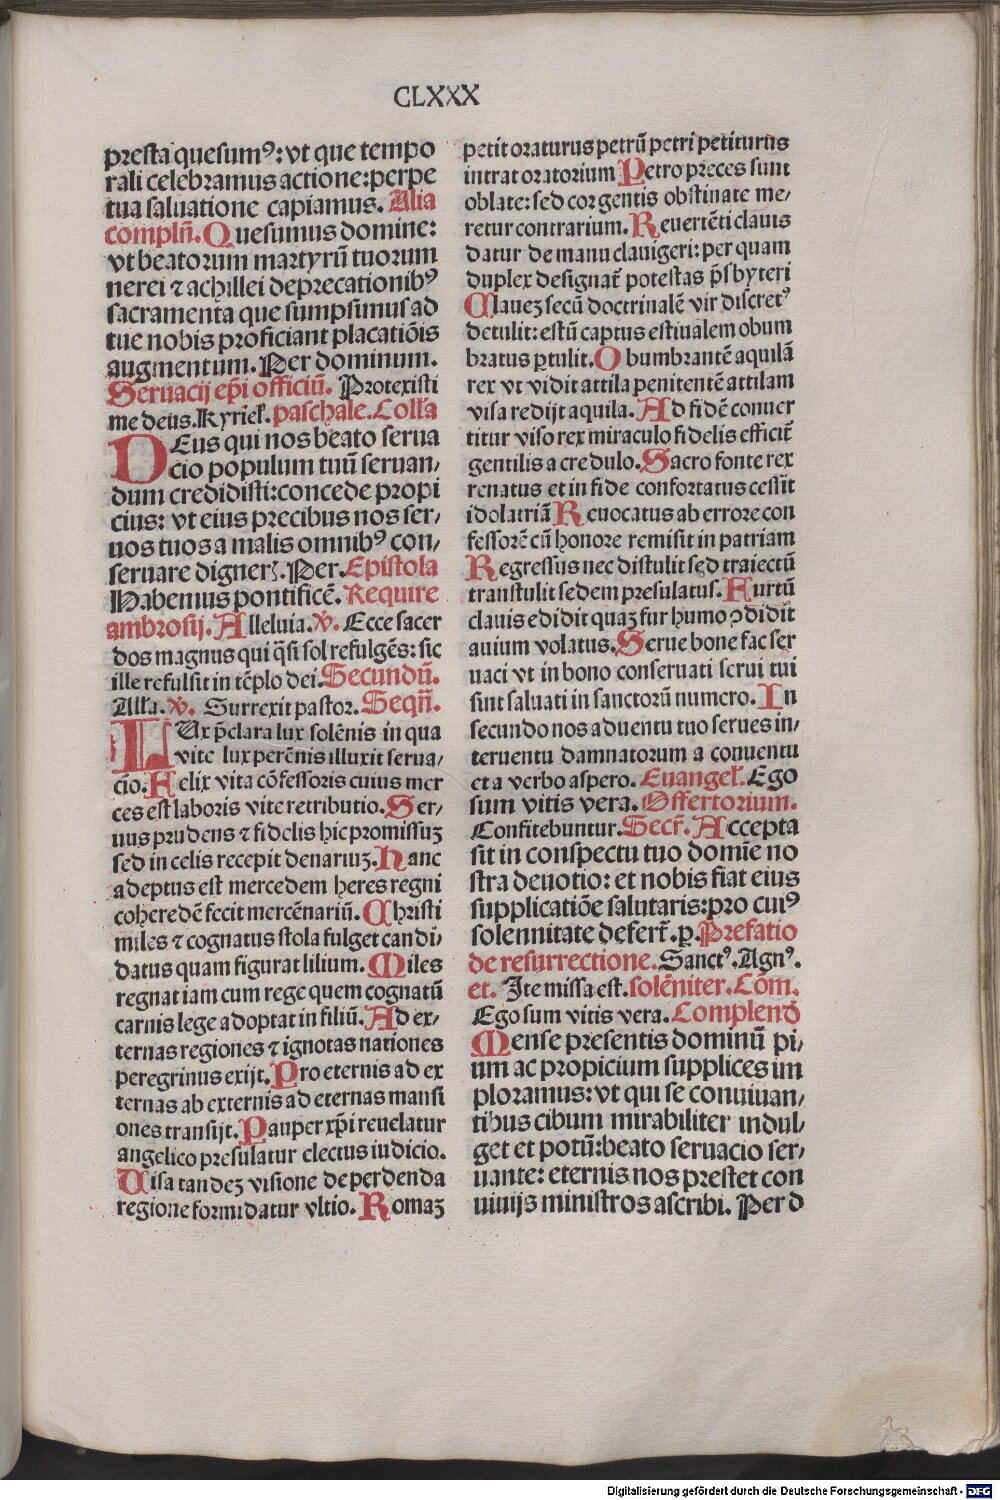 CLXXX
presta quesumꝰ: vt que tempo
rali celebramus actione: perpe
tua saluatione capiamus. Alia
complñ. Quesumus domine:
vt beatorum martyrũ tuorum
nerei ⁊ achillei deprecationibꝰ
sacramenta que sumpsimus ad
tue nobis proficiant placatiõis
augmentum. Per dominum.
Seruacij ep̃i officiũ. Protexisti
me deus. Kyrieł. paschale. Colła
DEus qui nos beato serua
cio populum tuũ seruan/
dum credidisti: concede propi
cius: vt eius precibus nos ser/
uos tuos a malis omnibꝰ con/
seruare digneris. Per. Epistola
Habemus pontificẽ. Require
ambrosij. Alleluia. v̾. Ecce sacer
dos magnus qui q̃si sol refulgẽs: sic
ille refulsit in tẽplo dei. Secundũ.
Alła. v̾. Surrexit pastor. Seqñ.
LUx p̃clara lux solẽnis in qua
vite lux perẽnis illuxit serua/
cio. Felix vita cõfessoris cuius mer
ces est laboris vite retributio. Ser/
uus prudens ⁊ fidelis hic promissuꝫ
sed in celis recepit denariuꝫ. Hanc
adeptus est mercedem heres regni
coheredẽ fecit mercẽnariũ. Christi
miles ⁊ cognatus stola fulget candi/
datus quam figurat lilium. Miles
regnat iam cum rege quem cognatũ
carnis lege adoptat in filiũ. Ad ex/
ternas regiones ⁊ ignotas nationes
peregrinus exijt. Pro eternis ad ex
ternas ab externis ad eternas mansi
ones transijt. Pauper xp̃i reuelatur
angelico presulatur electus iudicio.
Uisa tandeꝫ visione de perdenda
regione formidatur vltio. Romaꝫ
petit oraturus petrũ petri petiturus
intrat oratorium Petro preces sunt
oblate: sed cor gentis obstinate me/
retur contrarium. Reuertẽti clauis
datur de manu clauigeri: per quam
duplex designat̃ potestas p̃sbyteri
Claueꝫ secũ doctrinalẽ vir discretꝰ
detulit: estũ captus estiualem obum
bratus ꝑtulit. Obumbrantẽ aquilã
rex vt vidit attila penitentẽ attilam
visa redijt aquila. Ad fidẽ conuer
titur viso rex miraculo fidelis efficit̃
gentilis a credulo. Sacro fonte rex
renatus et in fide confortatus cessit
idolatriã Reuocatus ab errore con
fessorẽ cũ honore remisit in patriam
Regressus nec distulit sed traiectũ
transtulit sedem presulatus. Furtũ
clauis edidit quaꝫ fur humo ꝯdidit
auium volatus. Serue bone fac ser
uaci vt in bono conseruati serui tui
sint saluati in sanctorũ numero. In
secundo nos aduentu tuo serues in/
teruentu damnatorum a conuentu
et a verbo aspero. Euangeł. Ego
sum vitis vera. Offertorium.
Confitebuntur. Secr̃. Accepta
sit in conspectu tuo domĩe no
stra deuotio: et nobis fiat eius
supplicatiõe salutaris: pro cuiꝰ
solennitate defert̃. ꝑ. Prefatio
de resurrectione. Sanctꝰ. Agnꝰ.
et. Ite missa est. solẽniter. Cõm.
Ego sum vitis vera. Complend̃
Mense presentis dominũ pi/
um ac propicium supplices im
ploramus: vt qui se conuiuan/
tibus cibum mirabiliter indul/
get et potũ: beato seruacio ser/
uante: eternis nos prestet con
uiuijs ministros ascribi. Per d
Digitalisierung gefördert durch die Deutsche Forschungsgemeinschaft - DFG